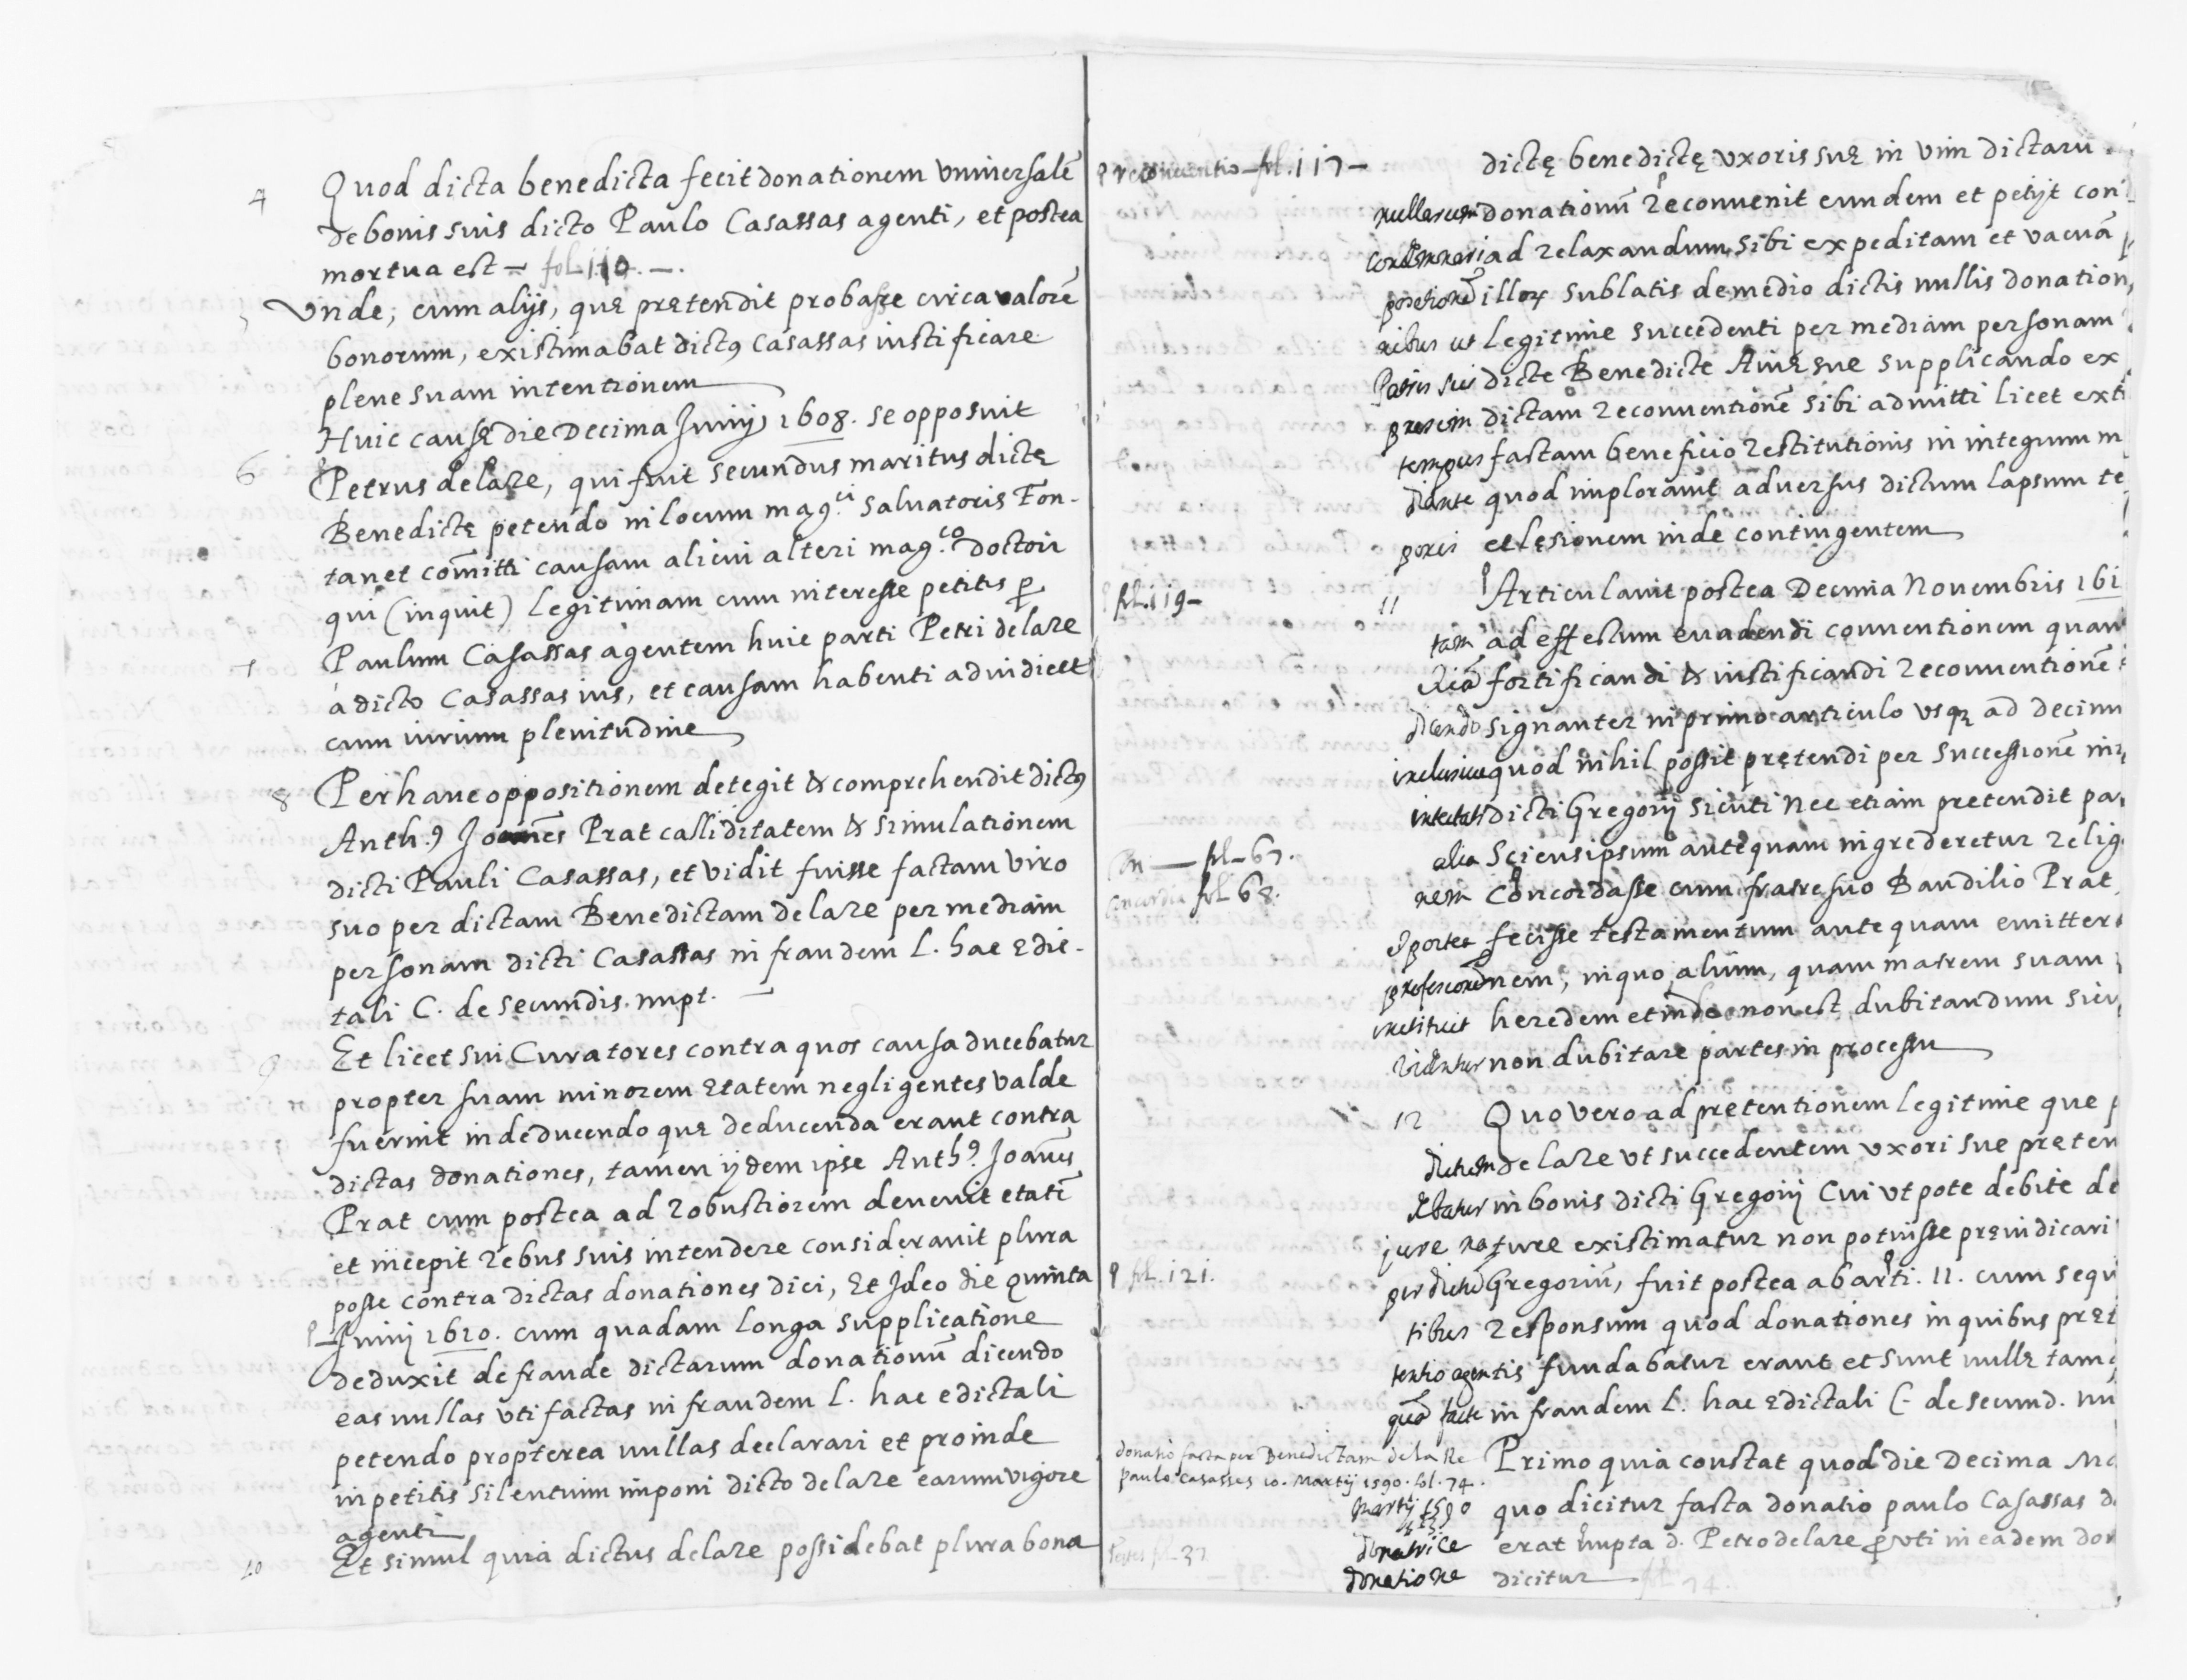 4 Quod dicta benedicta fecit donationem vniuersalẽ
de bonis suis dicto Paulo Casassas agenti, et postea
mortua est - fol. 110. -.
Vnde, cum alijs, quę pretendit probasse circa valorẽ
bonorum, existimabat dictꝰ Casassas iustificare
plene suam intentionem
Huic causę die Decima Junij 1608. se opposuit
6 Petrus delaze, qui fuit secundus maritus dictę
Benedictę petendo in locum mag.ci Saluatoris Fon-
tanet com̃itti causam alicui alteri mag.co Doctori
qui (inquit) legitimam cum interesse petitis ꝑ
7 Paulum Casassas agentem huic parti Petri delaze
à dicto Casassas ius, et causam habenti adiudicet
cum iurium plenitudine
8 Per hanc oppositionem detegit & comprehendit dictꝰ
Anth.ꝰ Joannes Prat calliditatem & simulationem
dicti Pauli Casassas, et vidit fuisse factam viro
suo per dictam Benedictam delaze per mediam
personam dicti Casassas in fraudem l. hac edic-
tali C. de secundis nupt.
9 Et licet sui Curatores contra quos causa ducebatur
propter suam minorem ętatem negligentes valde
fuerint in deducendo quę deducenda erant contra
dictas donationes, tamen ijdem ipse Anth.ꝰ Joañes
Prat cum postea ad robustiorem deuenit etatẽ
et incepit rebus suis intendere considerauit plura
posse contra dictas donationes dici, Et Jdeo die quinta
Junij 1610. cum quadam longa supplicatione
deduxit de fraude dictarum donationũ dicendo
eas nullas vti factas in fraudem l. hac edictali
petendo propterea nullas declarari et proinde
in petitis silentium imponi dicto delaze earum vigore
agenti
10 Et simul quia dictus delaze possidebat plura bona
reconuentio - fol. 117 -
dictę benedictę vxoris suę in vim dictarũ
nullarum donationũ reconuenit eundem et petijt con
demnari ad relaxandum sibi expeditam et vacuã
posesionẽ illoꝝ sublatis de medio dictis nullis donation
nibus ut legitime succedenti per mediam personam
Patris sui dicte Benedicte Auię sue supplicando ex
presein dictam reconuentionẽ sibi admitti licet extr
tempus factam beneficio restitutionis in integrum m
diante quod implorauit aduersus dictum lapsum te
poris et lęsionem inde contingentem
fol. 119 -
11 Articulauit postea Decima Nouembris 161
tam ad effectum euadendi conuentionem quam
etiã fortificandi & iustificandi reconuentionẽ
dicendo signanter in primo articulo vsqꝫ ad decimũ
inclusiue quod nihil possit pretendi per successionẽ in
intestati dicti Gregorij sicuti nec etiam pretendit pa
alia Sciens ipsum antequam ingrederetur relig
nem Concordasse cum fratre suo Baudilio Prat
fol. 67.
Concordia fol. 68.
& postea fecisse testamentum antequam emitter
profescionẽ, in quo alium, quam matrem suam
instituit heredem et inde non est dubitandum sicu
videntur non dubitare partes in processu
12 Quo vero ad pretentionem legitime que
dictum delaze vt succedentem vxori sue preten
debatur in bonis dicti Gregorij Cui vt pote debite de
jure nature existimatur non potuisse preiudicari
per dictũ Gregoriũ, fuit postea ab arti. 11. cum sequ
fol. 121.
tibus responsum quod donationes in quibus pręt
tentio agentis fundabatur erant et sunt nullę tam
quã facte in fraudem l. hac edictali C. de secund. nu
donatio facta per Benedictam de la Re
paulo Casasses 10. Martij 1590. fol. 74.
Primo quia constat quod die Decima Ma
Martij 1590 quo dicitur facta donatio paulo Casassas d
donatrice erat nupta d. Petro delaze ꝓvti in eadem don
fol. 37
donatione dicitur fol. 74.